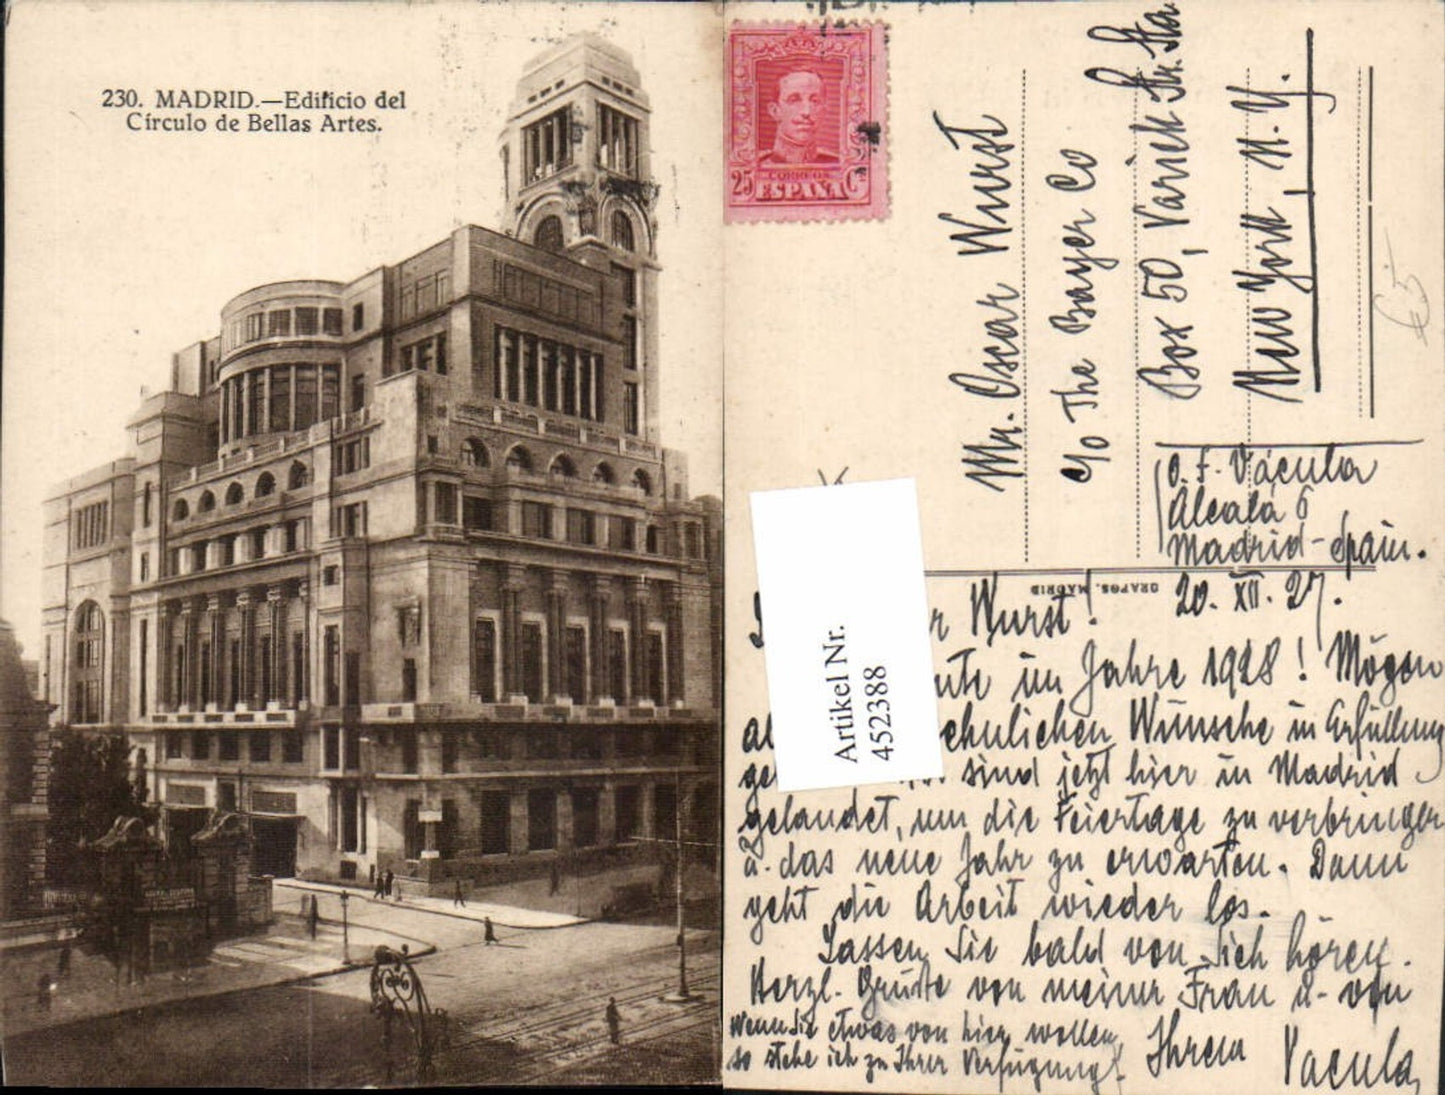 230. MADRID.—Edificio del
Círculo de Bellas Artes.
25 CORREOS Cs
ESPAÑA
Mr. Oscar Wurst
c/o The Bayer Co
Box 50, Varick Str. Sta
New York, N. Y.
€5.-
O. F. Vácula
Alcalá 6
Madrid - Spain.
GRAFOS. MADRID
20. XII. 27.
r Wurst!
ute im Jahre 1928! Mögen
al ehnlichen Wünsche in Erfüllung
ge sind jetzt hier in Madrid
gelandet, um die Feiertage zu verbringen
u. das neue Jahr zu erwarten. Dann
geht die Arbeit wieder los.
Lassen Sie bald von Sich hören.
Herzl. Grüße von meiner Frau u. von
Ihrem Vacula
Wenn Sie etwas von hier wollen,
so stehe ich zu Ihrer Verfügung!
Artikel Nr.
452388